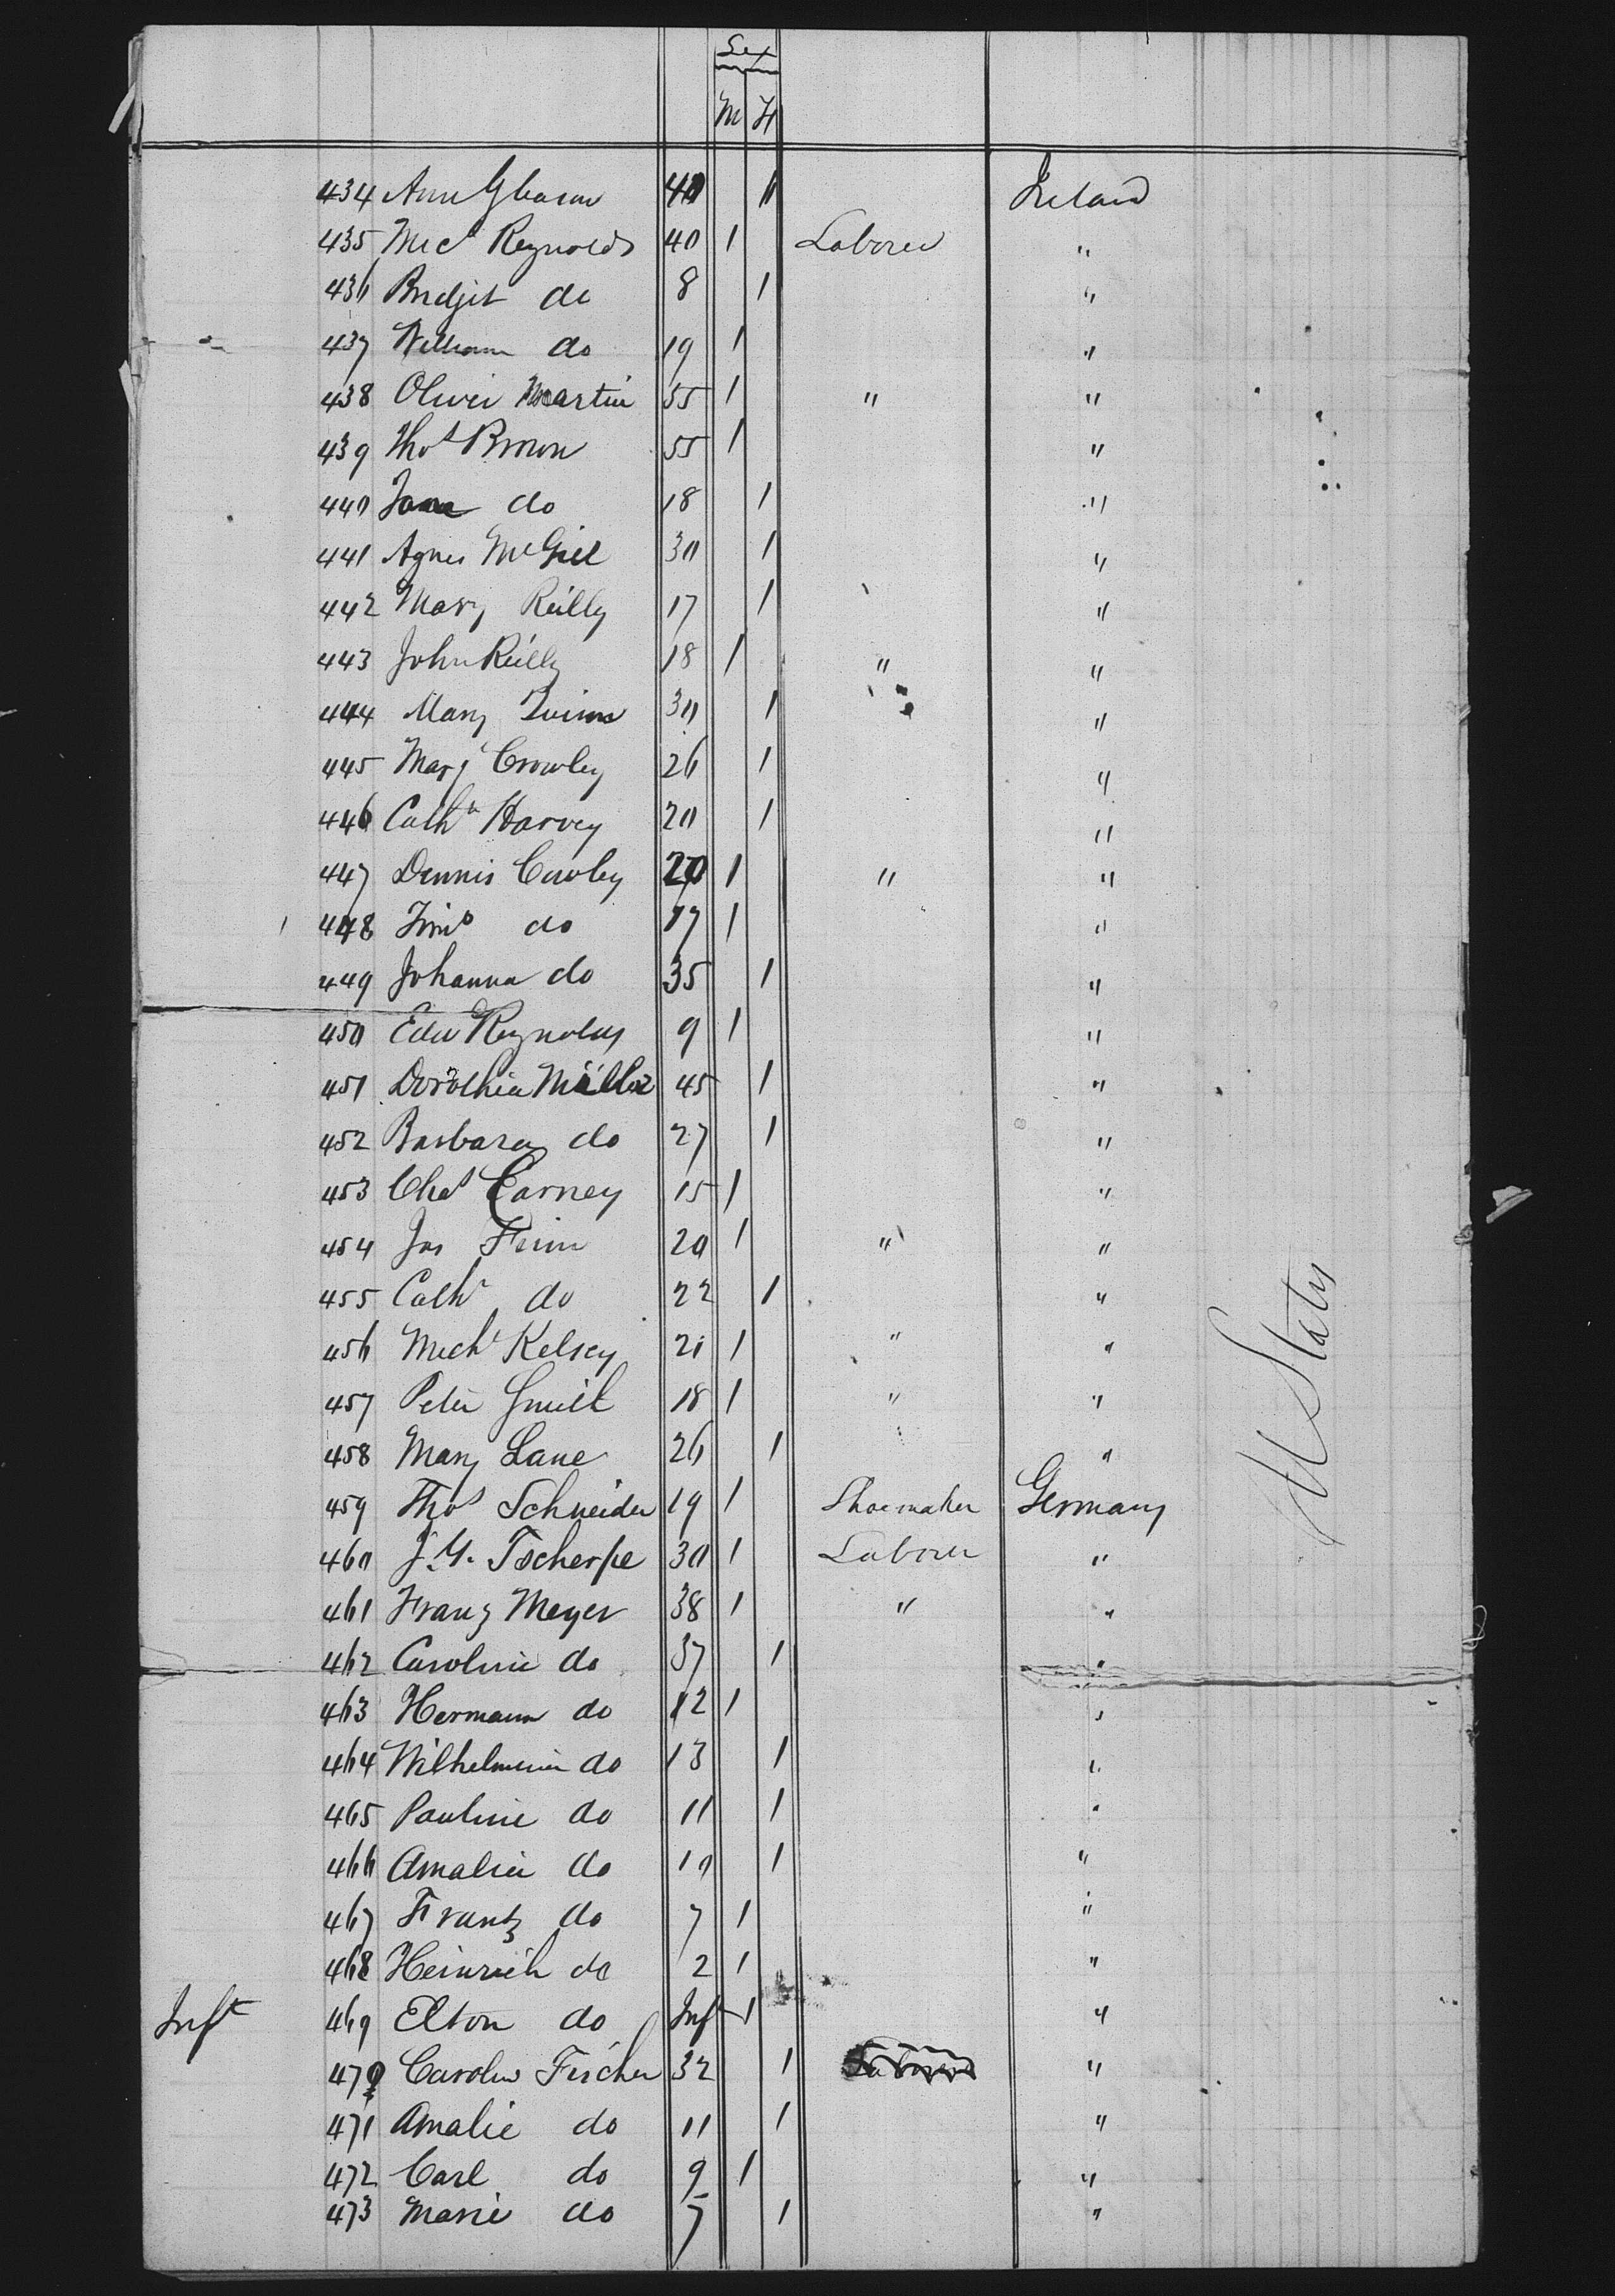 Sex
M F
434 Ann Gleason 40 1 Ireland
435 Mic^l Reynolds 40 1 Laborer "
436 Bridgit do 8 1 "
437 William do 19 1 "
438 Oliver Martin 35 1 " "
439 Tho^s Brown 55 1 "
440 Jane do 18 1 "
441 Agnes McGill 30 1 "
442 Mary Reilly 17 1 "
443 John Reilly 18 1 " "
444 Mary Quinn 30 1 "
445 Mary Crowley 26 1 "
446 Cath^n Harvey 20 1 "
447 Dennis Cowley 20 1 " "
448 Tim^o do 17 1 "
449 Johanna do 35 1 "
450 Edw Reynolds 9 1 "
451 Dorothea Müller 45 1 "
452 Barbara do 27 1 "
453 Cha^s Carney 15 1 "
454 Jas Finn 20 1 " "
455 Cath^n do 22 1 "
456 Mich^l Kelsey 21 1 " "
457 Peter Smith 18 1 " "
458 Mary Lane 26 1 "
459 Tho^s Schneider 19 1 Shoemaker Germany
460 J. G. Tscherpe 30 1 Laborer "
461 Franz Meyer 38 1 " "
462 Caroline do 37 1 "
463 Hermann do 12 1 "
464 Wilhelmine do 13 1 "
465 Pauline do 11 1 "
466 Amalie do 10 1 "
467 Frantz do 7 1 "
468 Heinrich do 2 1 "
Inft 469 Elton do Inf 1 "
470 Carolin Fischer 32 1 Laborer "
471 Amalie do 11 1 "
472 Carl do 9 1 "
473 Marie do 7 1 "
U States